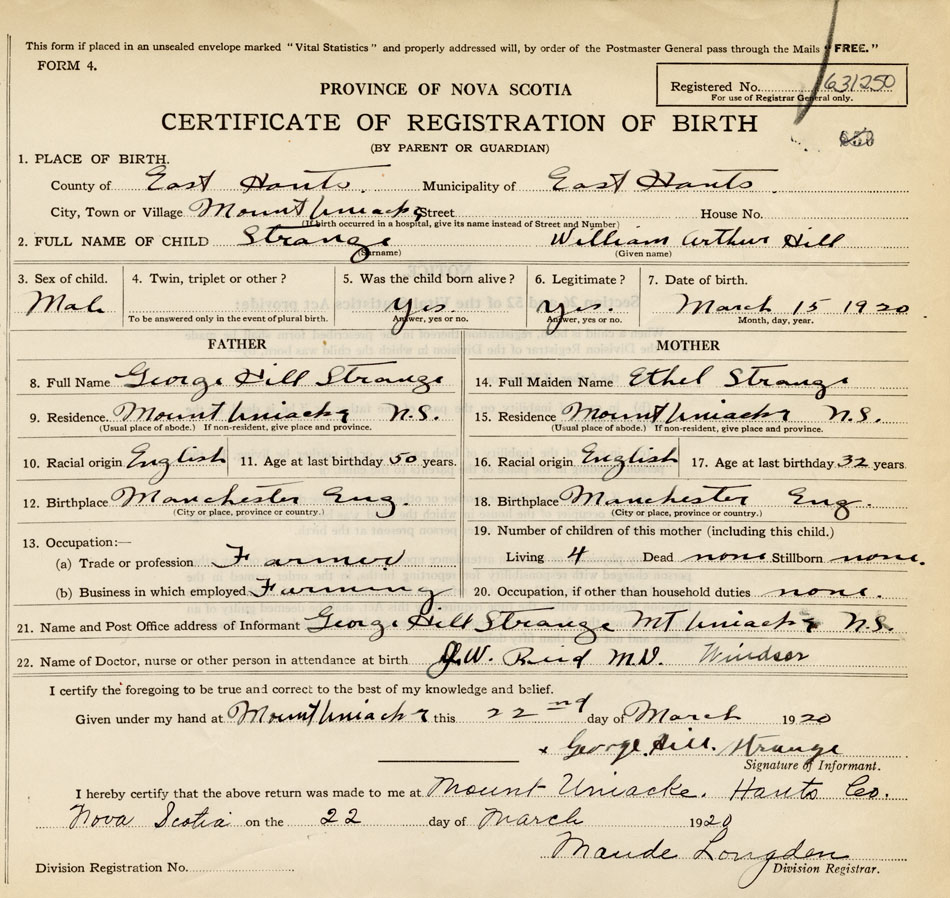 This form if placed in an unsealed envelope marked "Vital Statistics" and properly addressed will, by order of the Postmaster General pass through the Mails "FREE."
FORM 4.
Registered No. 631250
For use of Registrar General only.
PROVINCE OF NOVA SCOTIA
CERTIFICATE OF REGISTRATION OF BIRTH
(BY PARENT OR GUARDIAN)
1. PLACE OF BIRTH.
County of East Hants. Municipality of East Hants.
City, Town or Village Mount Uniacke Street House No.
(If birth occurred in a hospital, give its name instead of Street and Number)
2. FULL NAME OF CHILD Strange William Arthur Hill
(Surname) (Given name)
3. Sex of child. 4. Twin, triplet or other? 5. Was the child born alive? 6. Legitimate? 7. Date of birth.
Male Yes. Yes. March 15 1920
To be answered only in the event of plural birth. Answer, yes or no. Answer, yes or no. Month, day, year.
FATHER MOTHER
8. Full Name George Hill Strange 14. Full Maiden Name Ethel Strange
9. Residence. Mount Uniacke N.S. 15. Residence. Mount Uniacke N.S.
(Usual place of abode.) If non-resident, give place and province. (Usual place of abode.) If non-resident, give place and province.
10. Racial origin English 11. Age at last birthday 50 years. 16. Racial origin English 17. Age at last birthday 32 years.
12. Birthplace Manchester Eng. 18. Birthplace Manchester Eng.
(City or place, province or country.) (City or place, province or country.)
13. Occupation:— 19. Number of children of this mother (including this child.)
(a) Trade or profession Farmer Living 4 Dead none Stillborn none.
(b) Business in which employed Farming 20. Occupation, if other than household duties none.
21. Name and Post Office address of Informant George Hill Strange Mt Uniacke N.S.
22. Name of Doctor, nurse or other person in attendance at birth J.W. Reid M.D. Windsor
I certify the foregoing to be true and correct to the best of my knowledge and belief.
Given under my hand at Mount Uniacke this 22nd day of March 1920
x George Hill. Strange
Signature of Informant.
I hereby certify that the above return was made to me at Mount Uniacke. Hants Co.
Nova Scotia on the 22 day of March 1920
Maude Longden
Division Registration No. Division Registrar.